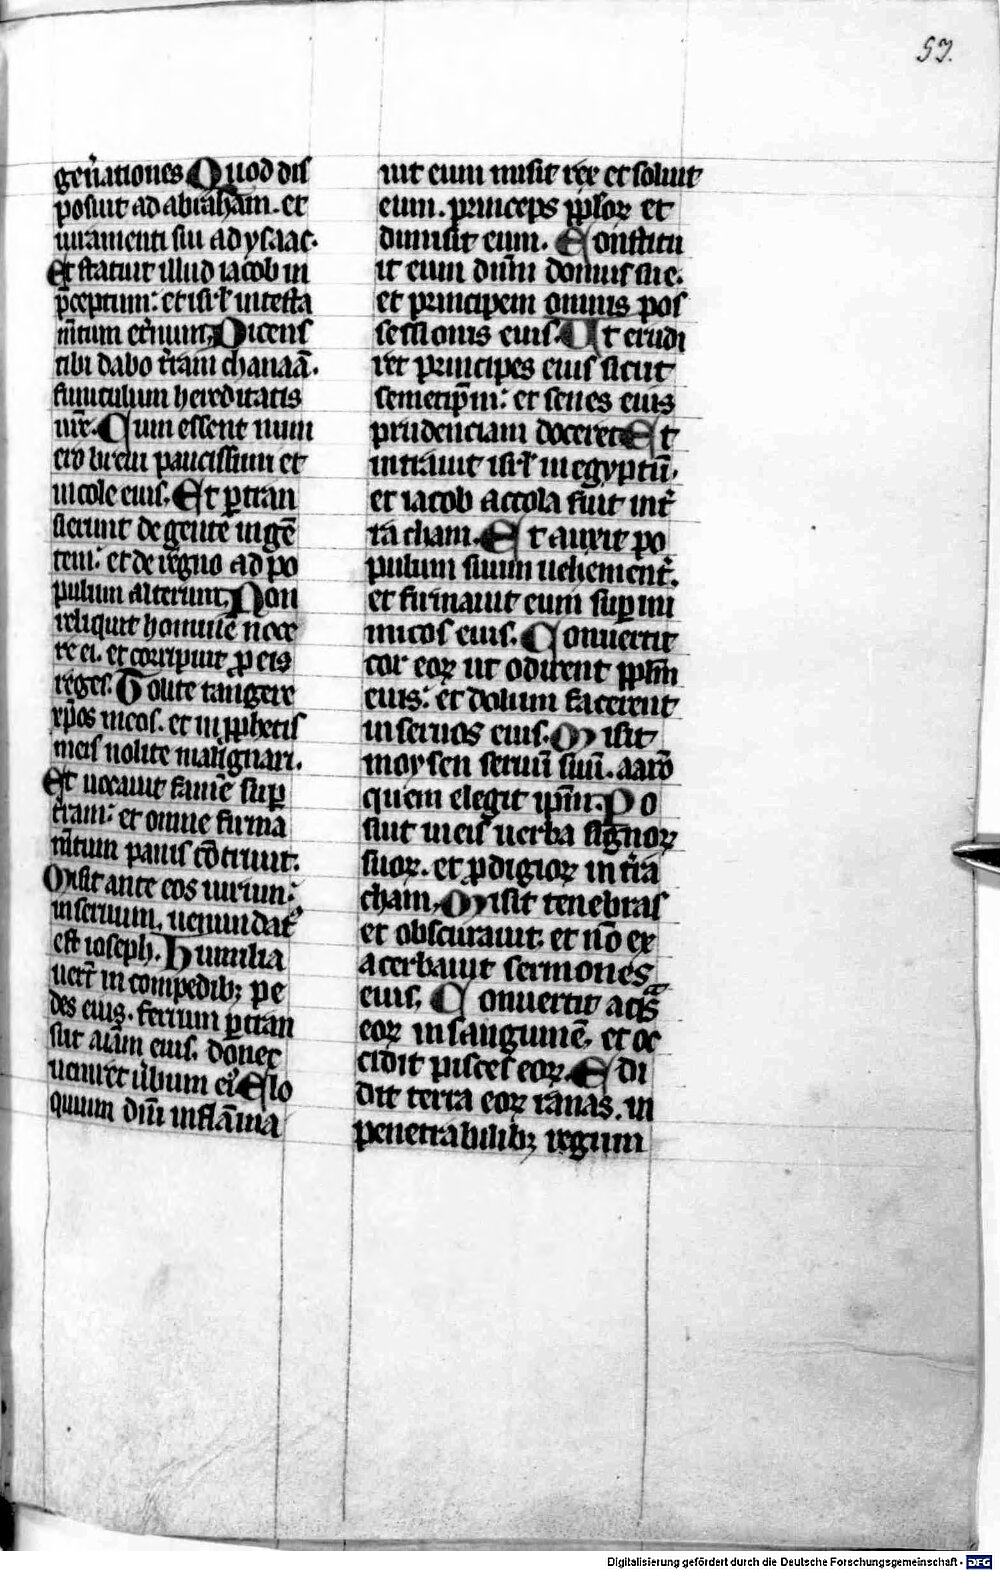 53.
gen̄ationes Quod dis
posuit ad abraham. et
iuramenti sui ad ysaac.
Et statuit illud iacob in
p̄ceptum: et isr̄l in testa
m̄tum et̄num. Dicens
tibi dabo t̄ram chanaā.
funiculum hereditatis
ur̄e. Cum essent num
ero breui paucissimi et
incole eius. Et ꝑtran
sierunt de gente in gē
tem: et de regno ad po
pulum alterum. Non
reliquit hominē noce
re ei. et corripuit ꝓ eis
reges. Nolite tangere
xp̄os meos. et in ꝓphetis
meis nolite malignari.
Et uocauit famē sup̄
t̄ram: et omne firma
m̄tum panis cōtriuit.
Misit ante eos uirum:
in seruum. uenundat᷒
est ioseph. Humilia
uer̄t in compedibꝫ pe
des eius. ferrum ꝑtran
siit aīam eius. donec
ueniret ūbum ei᷒ Elo
quium dn̄i inflāma
uit eum misit rex et soluit
eum. princeps pp̄lorꝝ et
dimisit eum. Constitu
it eum dn̄m domus sue.
et principem omnis pos
sessionis eius. Ut erudi
ret principes eius sicut
semetip̄m: et senes eius
prudenciam doceret Et
intrauit isr̄l in egyptū.
et iacob accola fuit in t̄
ra cham. Et auxit po
pulum suum uehement̄.
et firmauit eum sup̄ ini
micos eius. Conuertit
cor eoꝝ ut odirent pp̄lm̄
eius: et dolum facerent
in seruos eius. Misit
moysen seruū suū. aarō
quem elegit ip̄m. Po
suit in eis uerba signoꝝ
suoꝝ. et ꝓdigioꝝ in t̄ra
cham. Misit tenebras
et obscurauit. et nō ex
acerbauit sermones
eius. Conuertit aq̄s
eoꝝ in sanguinē. et oc
cidit pisces eoꝝ. Edi
dit terra eoꝝ ranas. in
penetrabilibꝫ regum
Digitalisierung gefördert durch die Deutsche Forschungsgemeinschaft - DFG